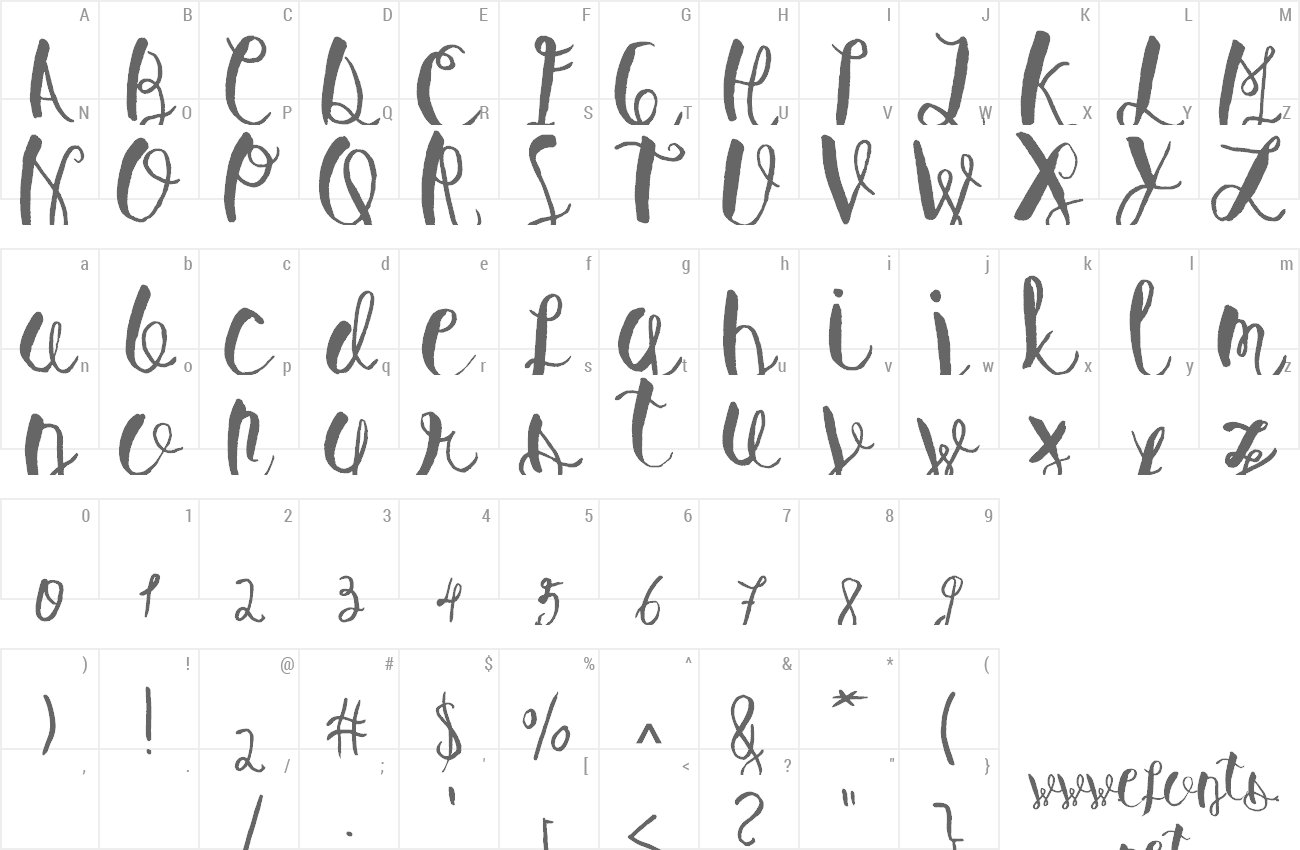 A B C D E F G H I J K L M
A B C D E F G H I J K L M
N O P Q R S T U V W X Y Z
N O P Q R S T U V W X Y Z
a b c d e f g h i j k l m
a b c d e f g h i j k l m
n o p q r s t u v w x y z
n o p q r s t u v w x y z
0 1 2 3 4 5 6 7 8 9
0 1 2 3 4 5 6 7 8 9
) ! @ # $ % ^ & * (
) ! 2 # $ % ^ & * (
, . / ; ' [ < ? " }
/ ' [ < ? " }